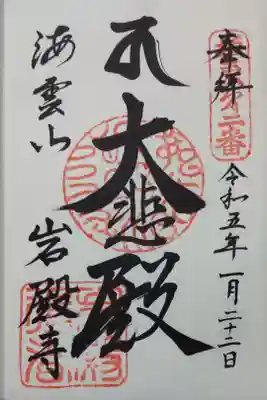 奉拝
第二番
令和五年一月二十二日
大悲殿
海雲山
岩殿寺